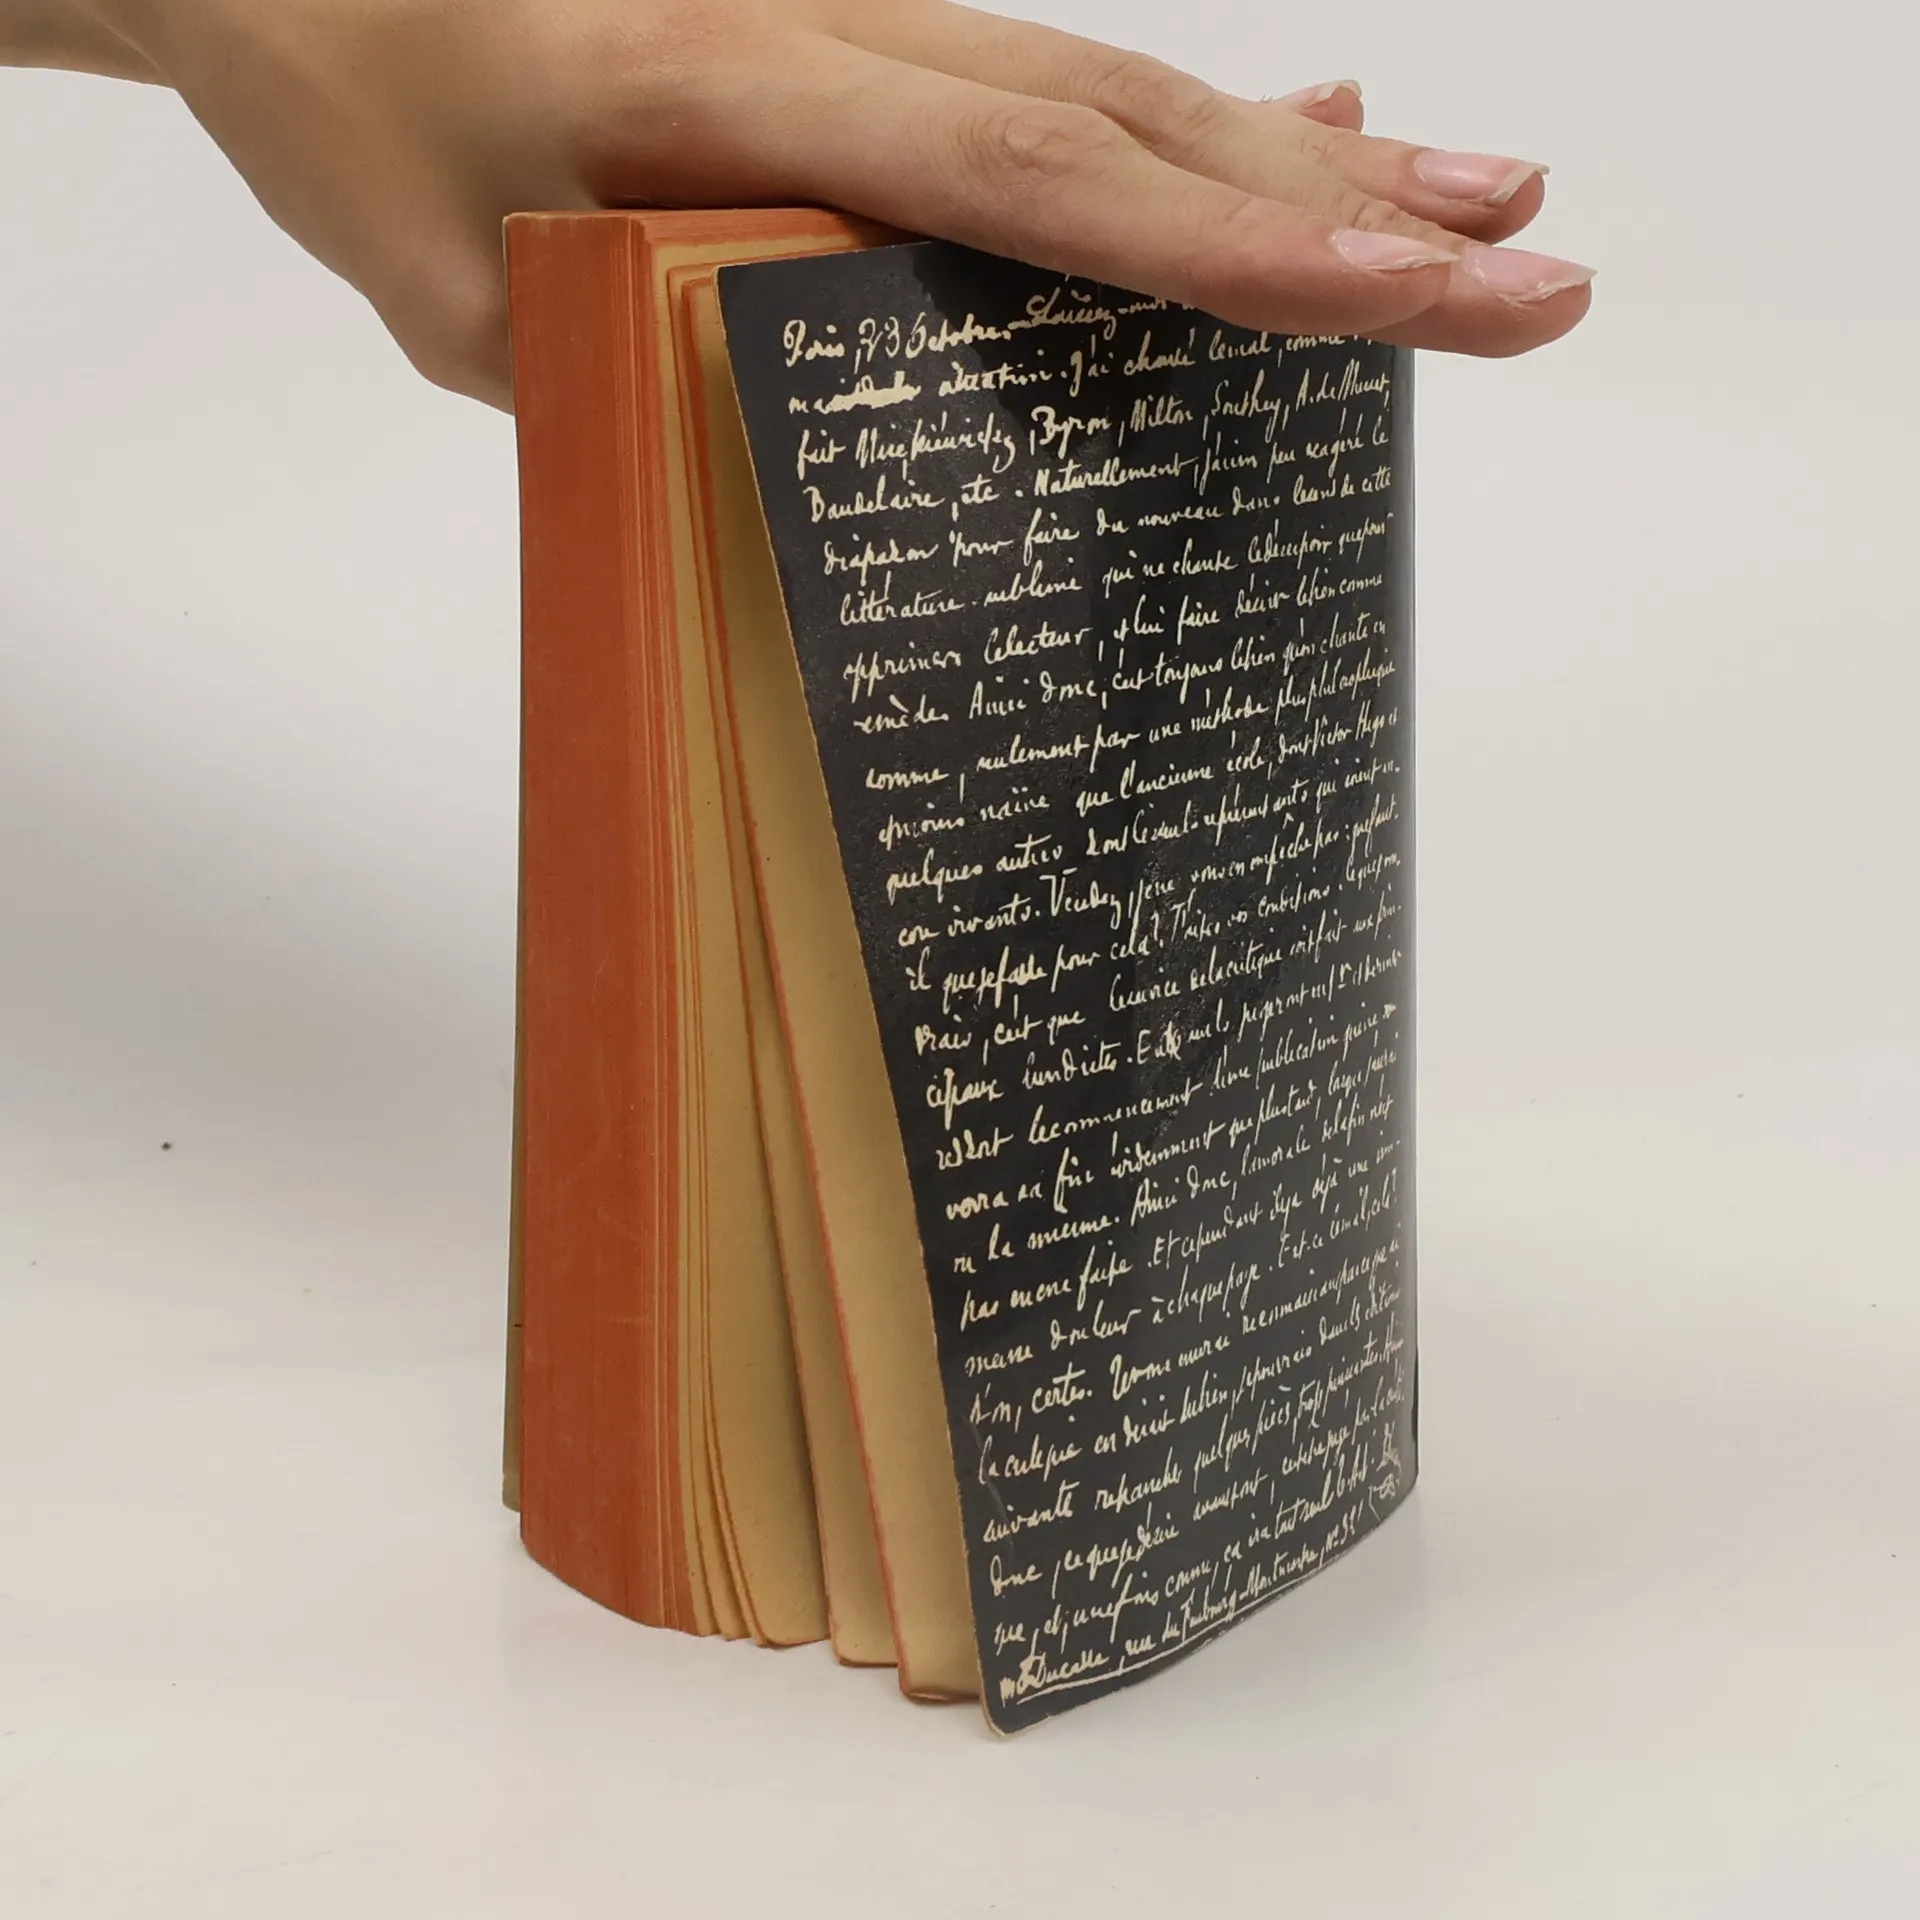 Paris, 23 Octobre. – Laissez-moi
ma situation. J'ai chanté le mal, comme
fait Mickiéwickz, Byron, Milton, Southey, A. de Musset,
Baudelaire, etc. Naturellement, j'ai un peu exagéré le
diapason pour faire du nouveau dans le sens de cette
littérature sublime qui ne chante le désespoir que pour
opprimer le lecteur, et lui faire désirer le bien comme
remède. Ainsi donc, c'est toujours le bien qu'on chante en
somme, seulement par une méthode plus philosophique
et moins naïve que l'ancienne école, dont Victor Hugo et
quelques autres sont les seuls représentants qui soient en-
core vivants. Vendez, je ne vous en empêche pas : que faut-
il que je fasse pour cela? Faites vos conditions. Ce que je vou-
drais, c'est que le service de la critique soit fait aux prin-
cipaux lundistes. Eux seuls jugeront en 1er et dernier
ressort le commencement d'une publication qui ne
verra sa fin évidemment que plus tard, lorsque j'aurai
vu la mienne. Ainsi donc, la morale de la fin n'est
pas encore faite. Et cependant il y a déjà une im-
mense douleur à chaque page. Est-ce le mal, cela?
Non, certes. Je vous en serai reconnaissant, parce que si
la critique en disait du bien, je pourrais dans les éditions
suivantes retrancher quelques pièces, trop puissantes. Ainsi
donc, ce que je désire avant tout, c'est être jugé par la criti-
que, et, une fois connu, ça ira tout seul. T. A. V.
I. Ducasse, rue du Faubourg-Montmartre, No 32